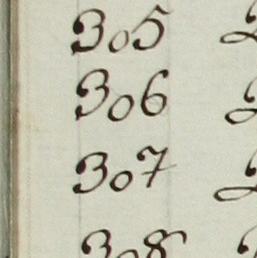 305
306
307
308